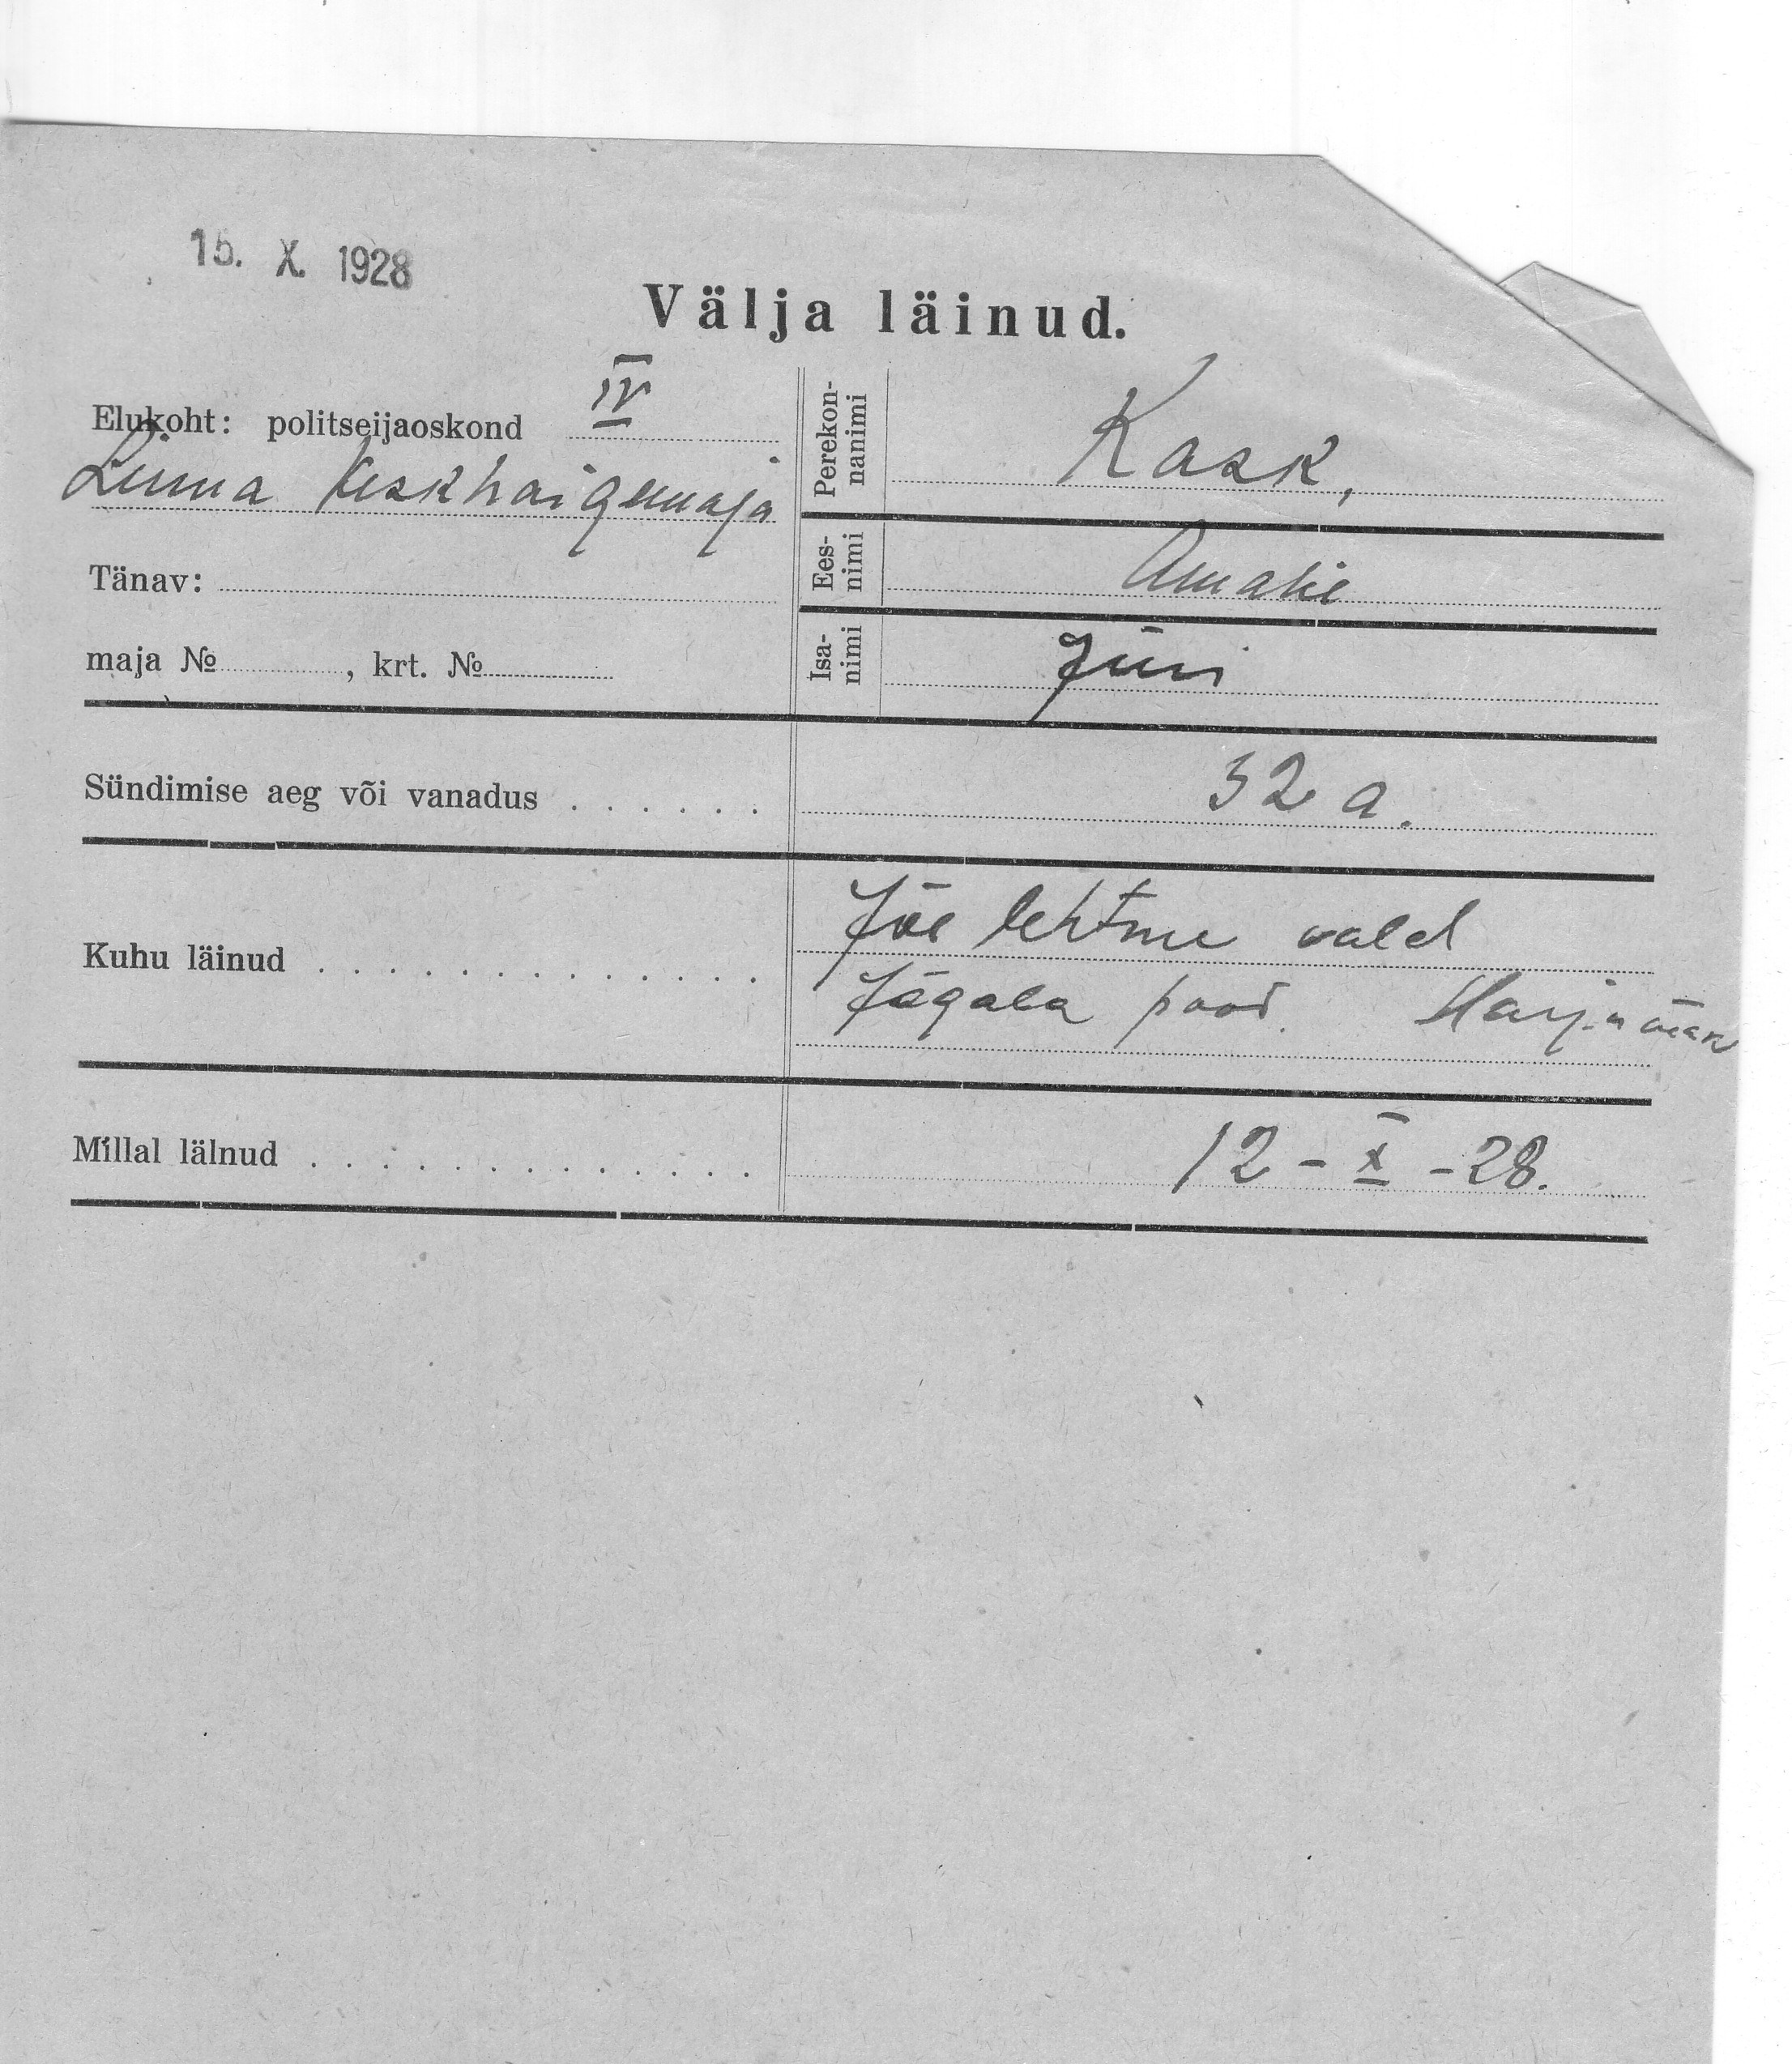 15. X. 1928
Välja läinud.
Elukoht: politseijaoskond IV
Linna Keskhaigemaja
Tänav:
maja № , krt. №
Perekon-
nanimi
Kask,
Ees-
nimi
Amalie
Isa-
nimi
Jüri
Sündimise aeg või vanadus . . . . . .
32 a.
Kuhu läinud . . . . . . . . . . . . .
Jõelehtme vald
Jägala pood. Harju
Millal läinud . . . . . . . . . . . . .
12 - X - 28.